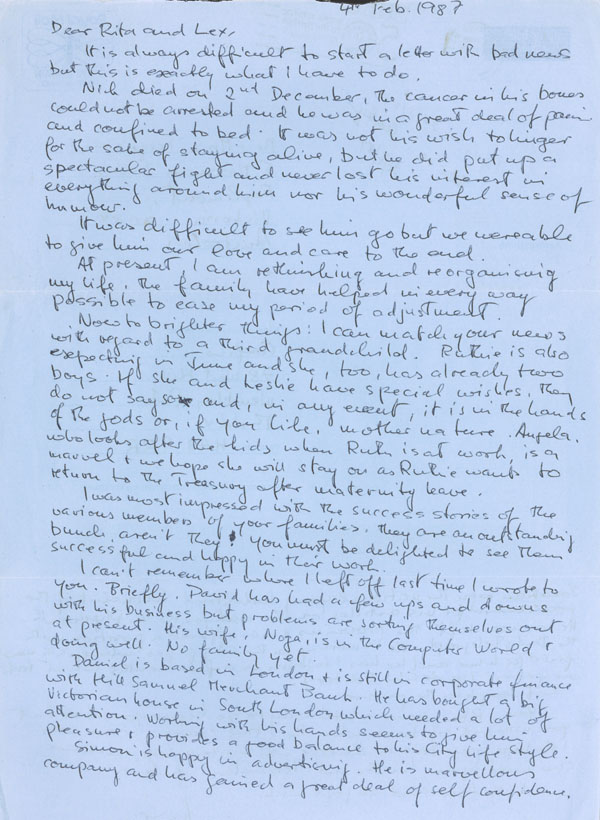 4th Feb. 1987
Dear Rita and Lex,
It is always difficult to start a letter with bad news
but this is exactly what I have to do.
Nick died on 2nd December, the cancer in his bones
could not be arrested and he was in a great deal of pain
and confined to bed. It was not his wish to linger
for the sake of staying alive, but he did put up a
spectacular fight and never lost his interest in
everything around him nor his wonderful sense of
humour.
It was difficult to see him go but we were able
to give him our love and care to the end.
At present, I am rethinking and reorganising
my life, the family have helped in every way
possible to ease my period of adjustment.
Now to brighter things: I can match your news
with regard to a third grandchild. Ruthie is also
expecting in June and she, too, has already two
boys. If she and Leslie have special wishes, they
do not say so and, in any event, it is in the hands
of the gods or, if you like, mother nature. Angela,
who looks after the kids when Ruth is at work, is a
marvel & we hope she will stay on as Ruthie wants to
return to the Treasury after maternity leave.
I was most impressed with the success stories of the
various members of your families. They are an outstanding
bunch, aren't they! You must be delighted to see them
successful and happy in their work.
I can't remember where I left off last time I wrote to
you. Briefly. David has had a few ups and downs
with his business but problems are sorting themselves out
at present. His wife, Noga, is in the Computer World &
doing well. No family yet.
Daniel is based in London & is still in corporate finance
with Hill Samuel Merchant Bank. He has bought a big
Victorian house in South London which needed a lot of
attention. Working with his hands seems to give him
pleasure & provides a good balance to his City life style.
Simon is happy in advertising. He is marvellous
company and has gained a great deal of self confidence.